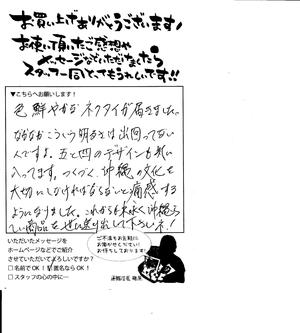 お買い上げありがとうございます!
お使い頂いたご感想や
メッセージなどいただけましたら
スタッフ一同とてもうれしいです!!
▼こちらへお願いします!
色鮮やかなネクタイが届きました。
なかなかこういう明るさは出回ってない
んですよ。五と四のデザインも気に
入ってます。つくづく、沖縄の文化を
大切にしなければならないと痛感する
ようになりました。これからも末永く沖縄ら
しい商品をぜひ送り出して下さいネ!
いただいたメッセージを
ホームページなどでご紹介
させていただいてよろしいですか?
□名前でOK! □匿名ならOK!
□スタッフの心の中に…
ご不満もお気軽に
お聞かせください!
お待ちしております!